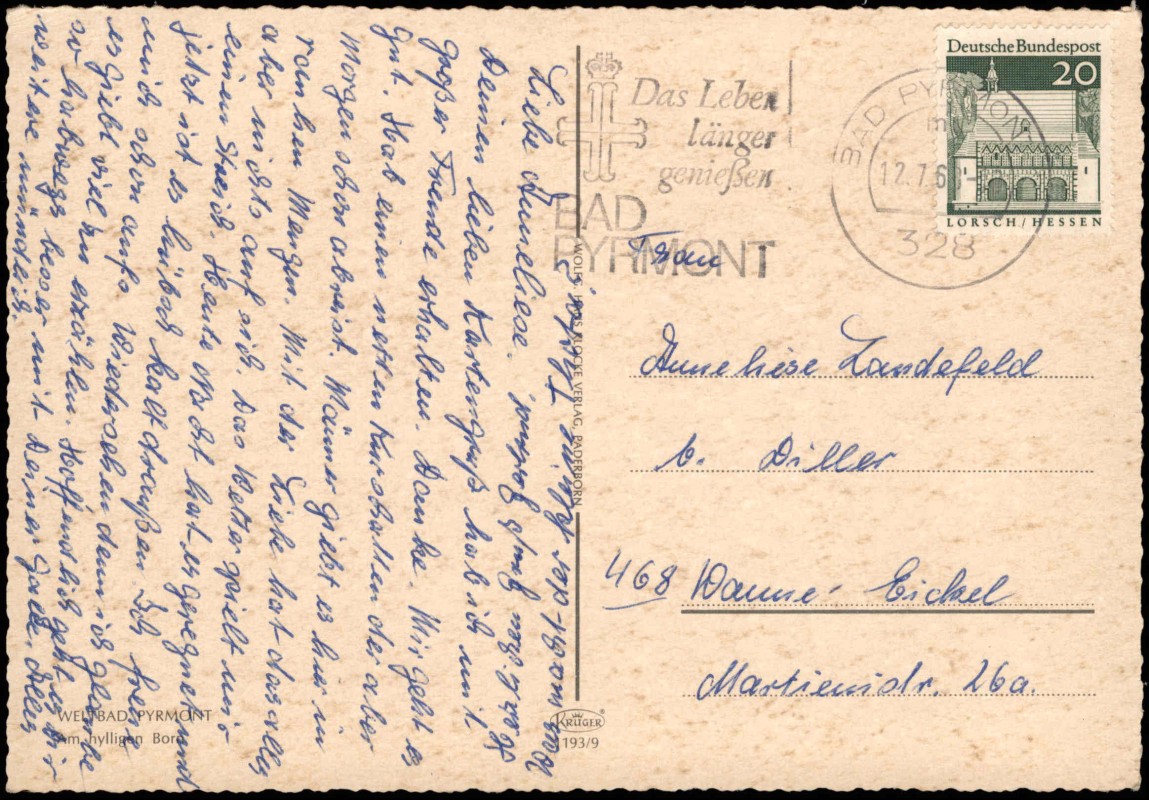 Liebe Anneliese.
Deinen lieben Kartengruß hab ich mit
großer Freude erhalten. Danke. Mir geht es
gut. Hab einen netten Kurschatten der aber
Morgen schon abreist. Männer giebt es hier in
rauhen Mengen. Mit der Liebe hat das alles
aber nichts auf sich. Das Wetter spielt uns
einen Streich. Heute Nacht hat es geregnet und
jetzt ist es hübsch kalt draußen. Ich freue
mich schon aufs Wiedersehen denn ich glaube
es giebt viel zu erzählen. Hoffendlich geht es Dir
so halbwegs besser mit Deiner Galle. Alles
weitere mündlich.
Das Leben
länger
genießen
BAD
PYRMONT
BAD PYRMONT
12.7.6
328
Deutsche Bundespost
20
LORSCH / HESSEN
Frau
Anneliese Landefeld
b. Diller
468 Wanne-Eickel
Martienstr. 26a.
WOLFG. HANS KLOCKE VERLAG, PADERBORN
KRÜGER
1193/9
WELTBAD PYRMONT
Am hylligen Born